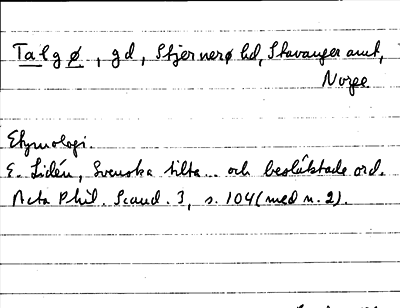 Talgø, gd, Stjernerø hd, Stavanger amt,
Norge
Etymologi.
E. Lidén, Svenska tilta... och besläktade ord.
Acta Phil. Scand. 3, s. 104 (med n. 2).